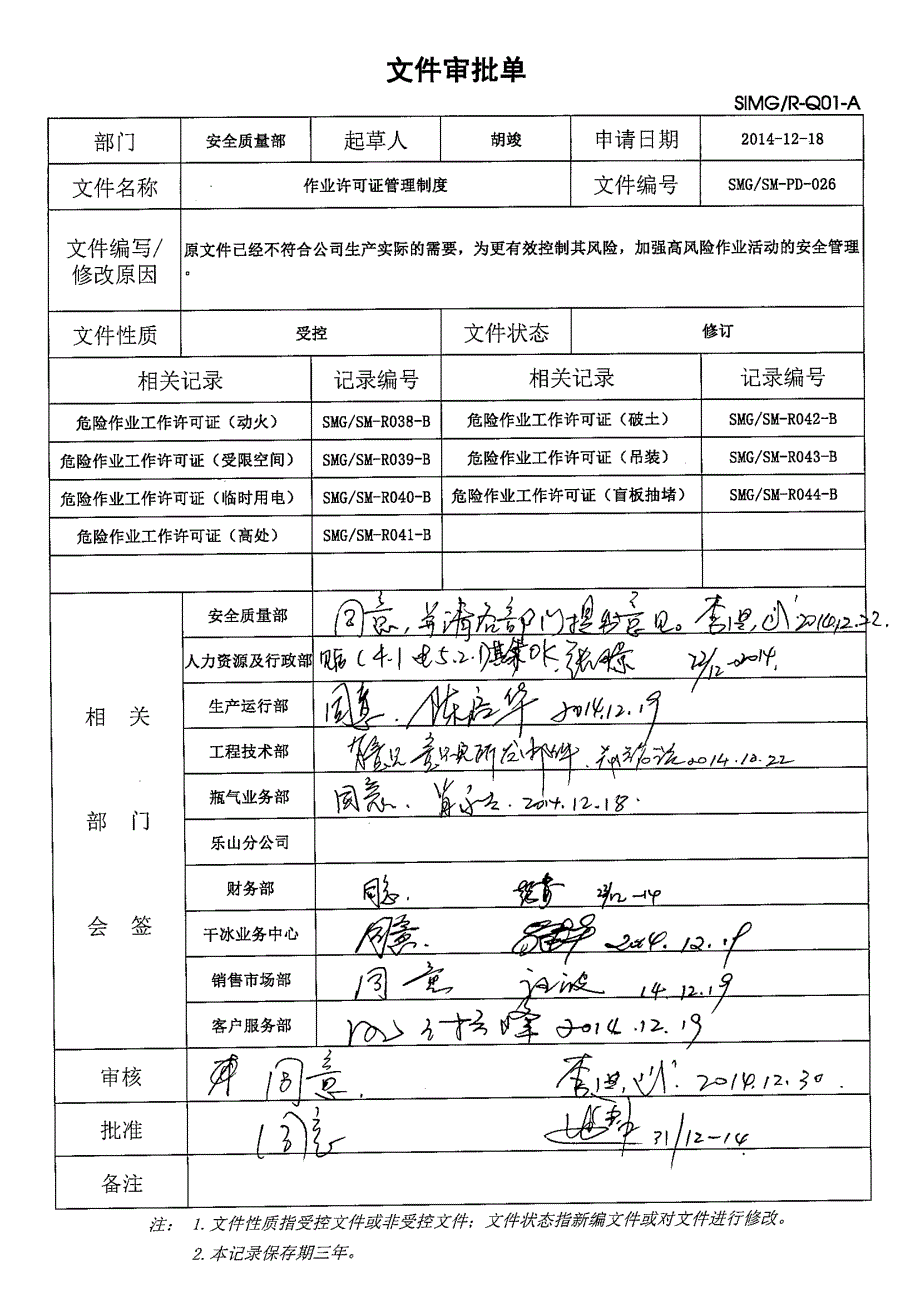 文件审批单
SIMG/R-Q01-A
部门 安全质量部 起草人 胡竣 申请日期 2014-12-18
文件名称 作业许可证管理制度 文件编号 SMG/SM-PD-026
文件编写/修改原因 原文件已经不符合公司生产实际的需要，为更有效控制其风险，加强高风险作业活动的安全管理。
文件性质 受控 文件状态 修订
相关记录 记录编号 相关记录 记录编号
危险作业工作许可证（动火） SMG/SM-R038-B 危险作业工作许可证（破土） SMG/SM-R042-B
危险作业工作许可证（受限空间） SMG/SM-R039-B 危险作业工作许可证（吊装） SMG/SM-R043-B
危险作业工作许可证（临时用电） SMG/SM-R040-B 危险作业工作许可证（盲板抽堵） SMG/SM-R044-B
危险作业工作许可证（高处） SMG/SM-R041-B
相关部门会签
安全质量部 同意，并请各部门提出意见。 2014.12.22.
人力资源及行政部 22/12-2014.
生产运行部 同意. 2014.12.19
工程技术部 2014.12.22
瓶气业务部 同意. 2014.12.18.
乐山分公司
财务部 同意. 22/12-14
干冰业务中心 同意. 2014.12.19
销售市场部 同意 14.12.19
客户服务部 2014.12.19
审核 同意. 2014.12.30.
批准 同意 31/12-14
备注
注： 1.文件性质指受控文件或非受控文件；文件状态指新编文件或对文件进行修改。
2.本记录保存期三年。